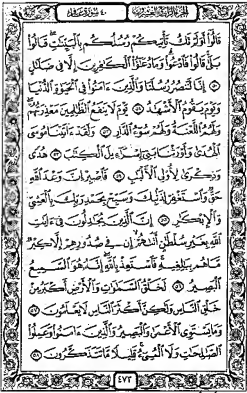 الجزء الرابع والعشرون ٤٠ سورة غافر
قَالُوٓا۟ أَوَلَمْ تَكُ تَأْتِيكُمْ رُسُلُكُم بِٱلْبَيِّنَـٰتِ ۖ قَالُوا۟
بَلَىٰ ۚ قَالُوا۟ فَٱدْعُوا۟ ۗ وَمَا دُعَـٰٓؤُا۟ ٱلْكَـٰفِرِينَ إِلَّا فِى ضَلَـٰلٍ
٥٠ إِنَّا لَنَنصُرُ رُسُلَنَا وَٱلَّذِينَ ءَامَنُوا۟ فِى ٱلْحَيَوٰةِ ٱلدُّنْيَا
وَيَوْمَ يَقُومُ ٱلْأَشْهَـٰدُ ٥١ يَوْمَ لَا يَنفَعُ ٱلظَّـٰلِمِينَ مَعْذِرَتُهُمْ ۖ
وَلَهُمُ ٱللَّعْنَةُ وَلَهُمْ سُوٓءُ ٱلدَّارِ ٥٢ وَلَقَدْ ءَاتَيْنَا مُوسَى
ٱلْهُدَىٰ وَأَوْرَثْنَا بَنِىٓ إِسْرَٰٓءِيلَ ٱلْكِتَـٰبَ ٥٣ هُدًى
وَذِكْرَىٰ لِأُو۟لِى ٱلْأَلْبَـٰبِ ٥٤ فَٱصْبِرْ إِنَّ وَعْدَ ٱللَّهِ
حَقٌّ وَٱسْتَغْفِرْ لِذَنۢبِكَ وَسَبِّحْ بِحَمْدِ رَبِّكَ بِٱلْعَشِىِّ
وَٱلْإِبْكَـٰرِ ٥٥ إِنَّ ٱلَّذِينَ يُجَـٰدِلُونَ فِىٓ ءَايَـٰتِ
ٱللَّهِ بِغَيْرِ سُلْطَـٰنٍ أَتَىٰهُمْ ۙ إِن فِى صُدُورِهِمْ إِلَّا كِبْرٌ
مَّا هُم بِبَـٰلِغِيهِ ۚ فَٱسْتَعِذْ بِٱللَّهِ ۖ إِنَّهُۥ هُوَ ٱلسَّمِيعُ
ٱلْبَصِيرُ ٥٦ لَخَلْقُ ٱلسَّمَـٰوَٰتِ وَٱلْأَرْضِ أَكْبَرُ مِنْ
خَلْقِ ٱلنَّاسِ وَلَـٰكِنَّ أَكْثَرَ ٱلنَّاسِ لَا يَعْلَمُونَ ٥٧
وَمَا يَسْتَوِى ٱلْأَعْمَىٰ وَٱلْبَصِيرُ وَٱلَّذِينَ ءَامَنُوا۟ وَعَمِلُوا۟
ٱلصَّـٰلِحَـٰتِ وَلَا ٱلْمُسِىٓءُ ۚ قَلِيلًا مَّا تَتَذَكَّرُونَ ٥٨
٤٧٣